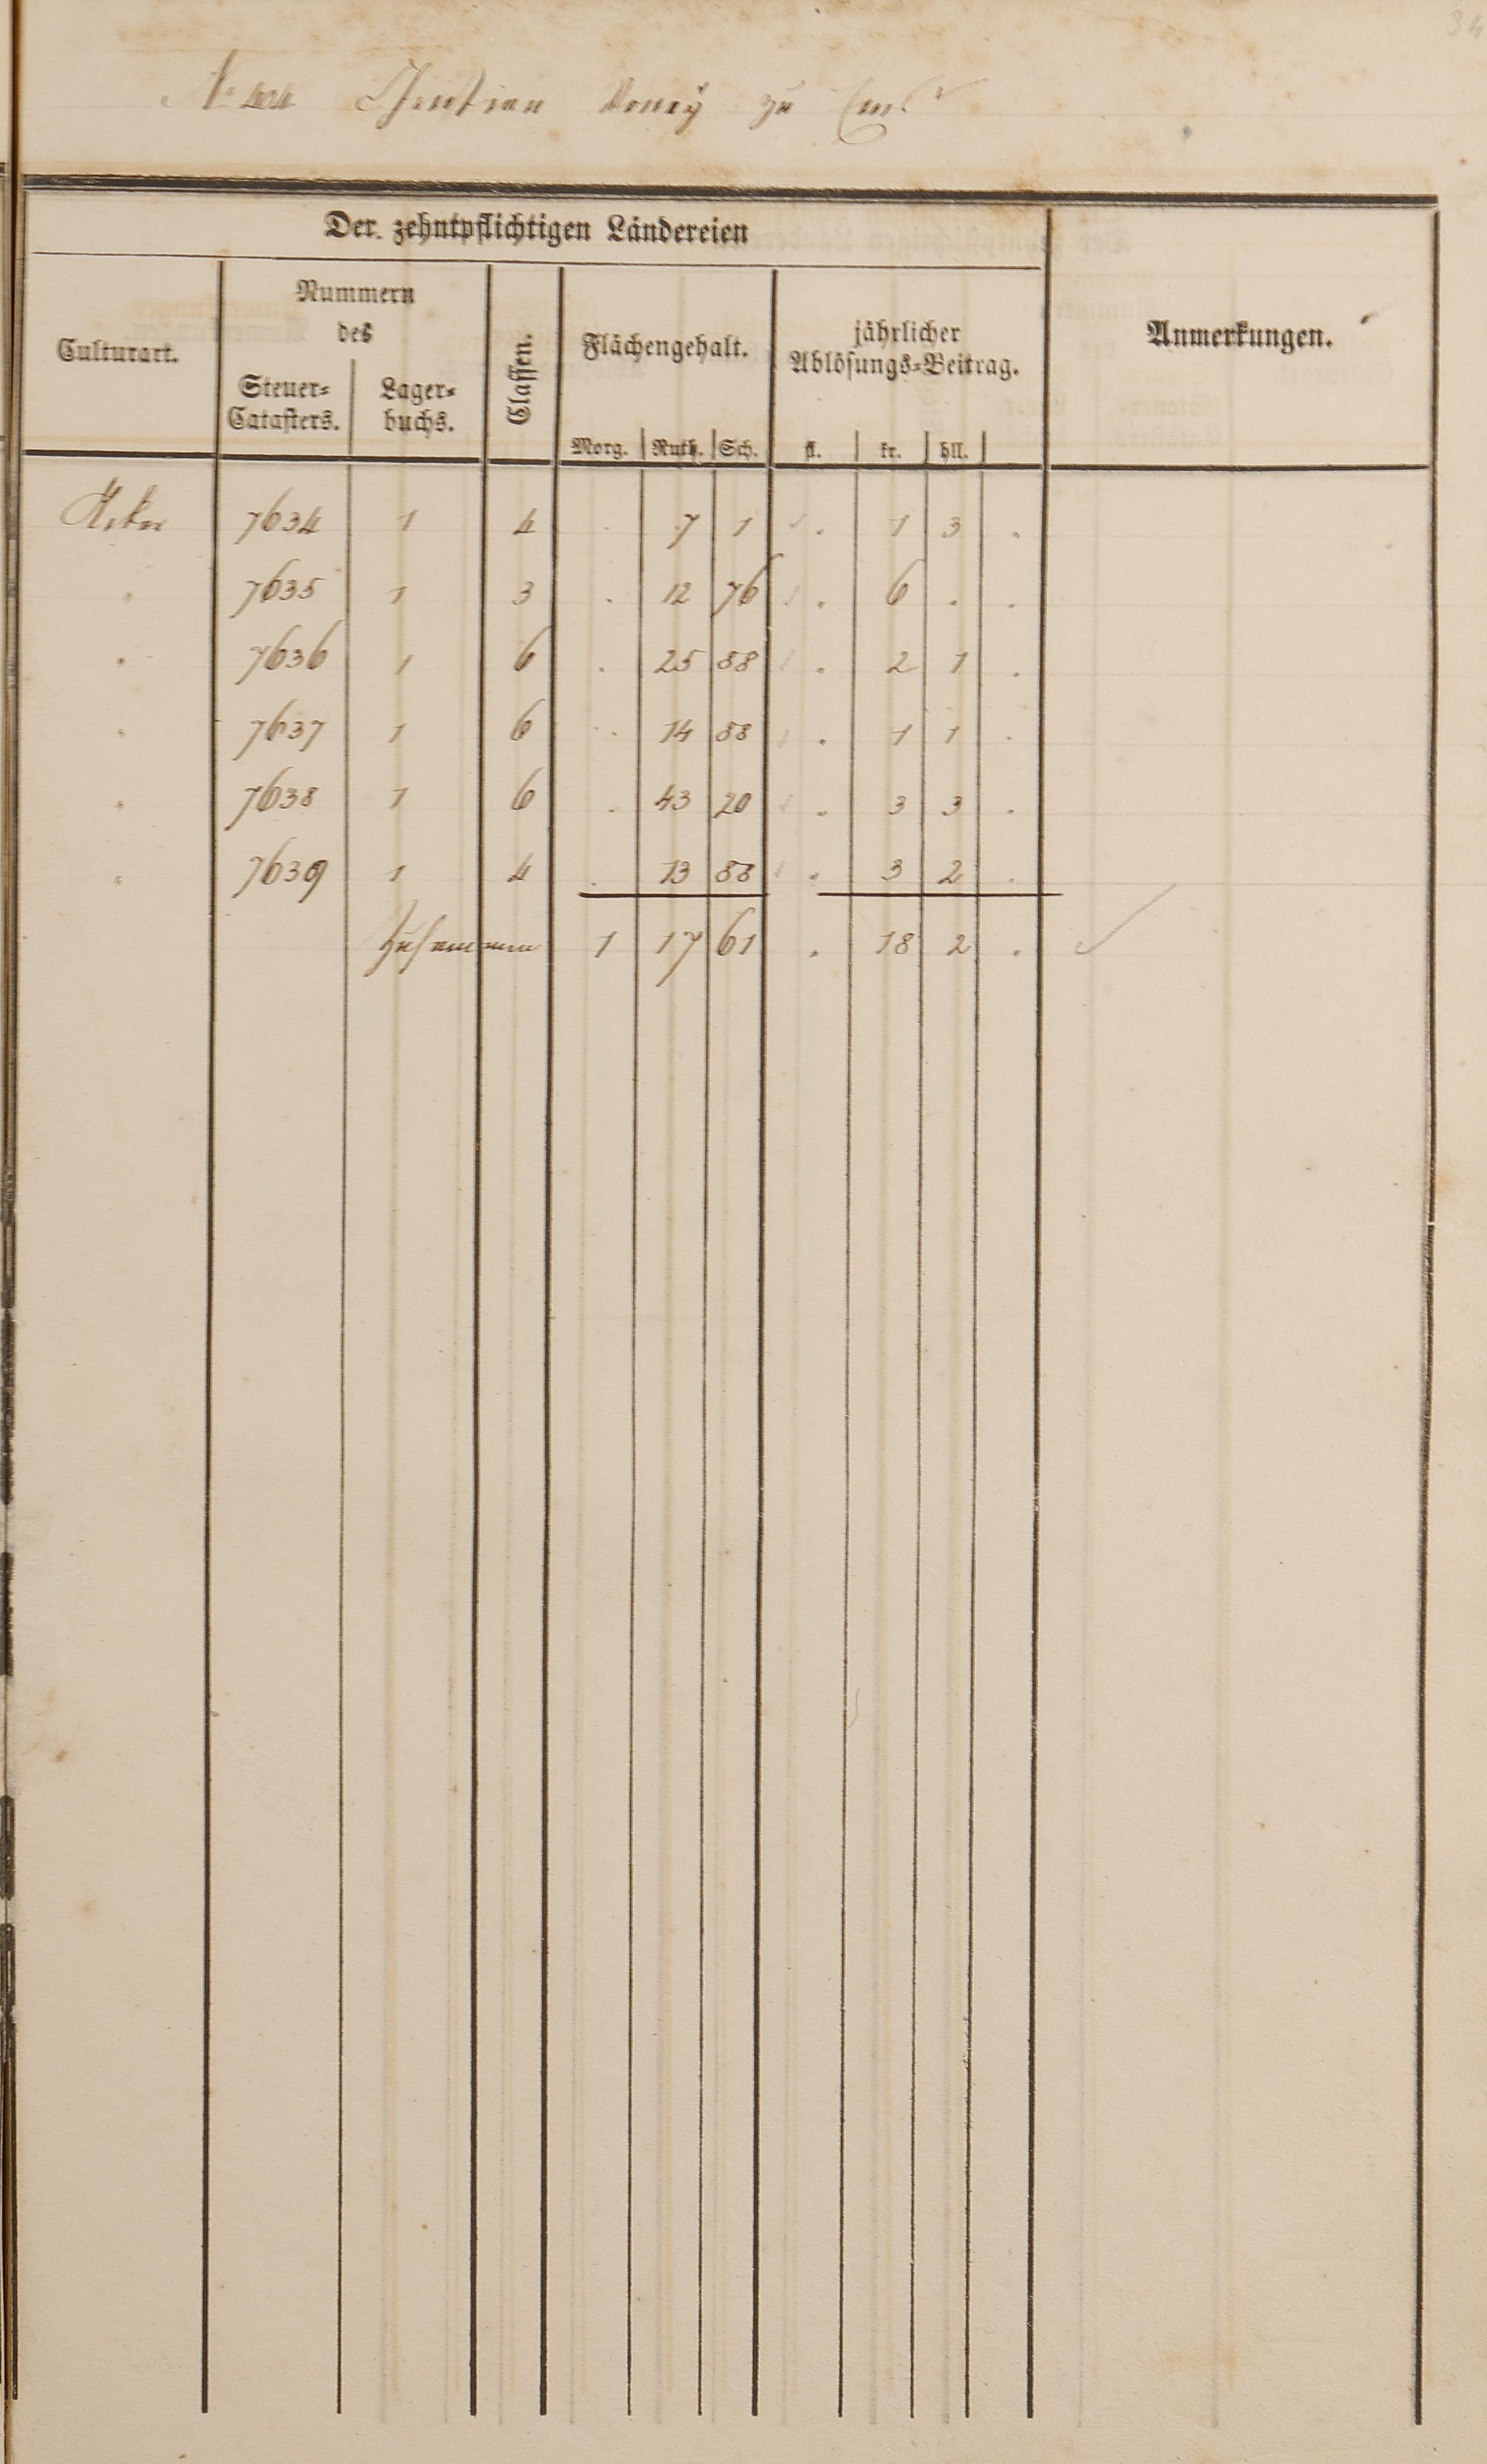 34
No 404 Christian zu Ems
Der zehntpflichtigen Ländereien
Culturart.
Nummern
des
Steuer-
Catasters.
Lager-
buchs.
Classen.
Flächengehalt.
Morg. Ruth. Sch.
jährlicher
Ablösungs-Beitrag.
fl. kr. hll.
Anmerkungen.
Acker 7634 1 4 . 7 1 . 1 3 .
" 7635 1 3 . 12 76 . 6 . .
" 7636 1 6 . 25 88 . 2 1 .
" 7637 1 6 . 14 88 . 1 1 .
" 7638 1 6 . 43 20 . 3 3 .
" 7639 1 4 . 13 88 . 3 2 .
Zusammen 1 17 61 . 18 2 .